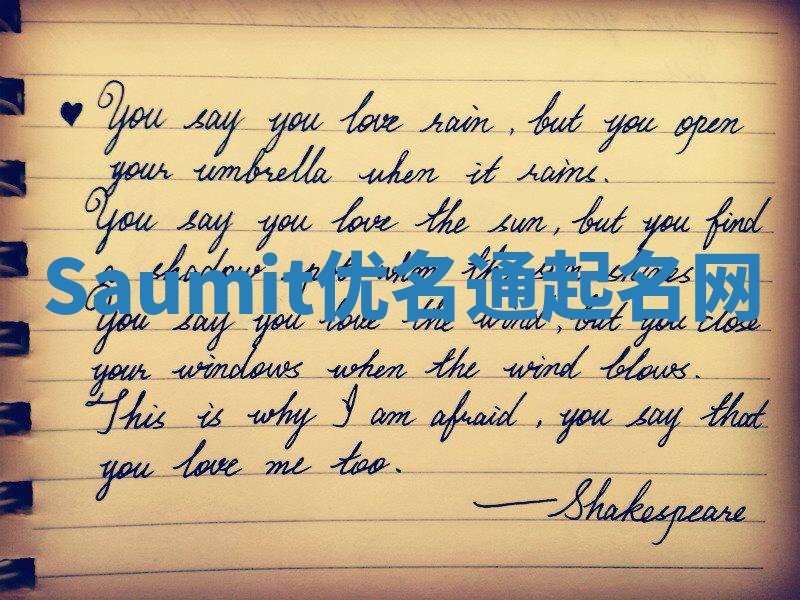 ♥ You say you love rain, but you open
your umbrella when it rains.
You say you love the sun, but you find
a shadow spot when the sun shines
Saumit优名通起名网
You say you love the wind, but you close
your windows when the wind blows.
This is why I am afraid, you say that
you love me too.
—Shakespeare